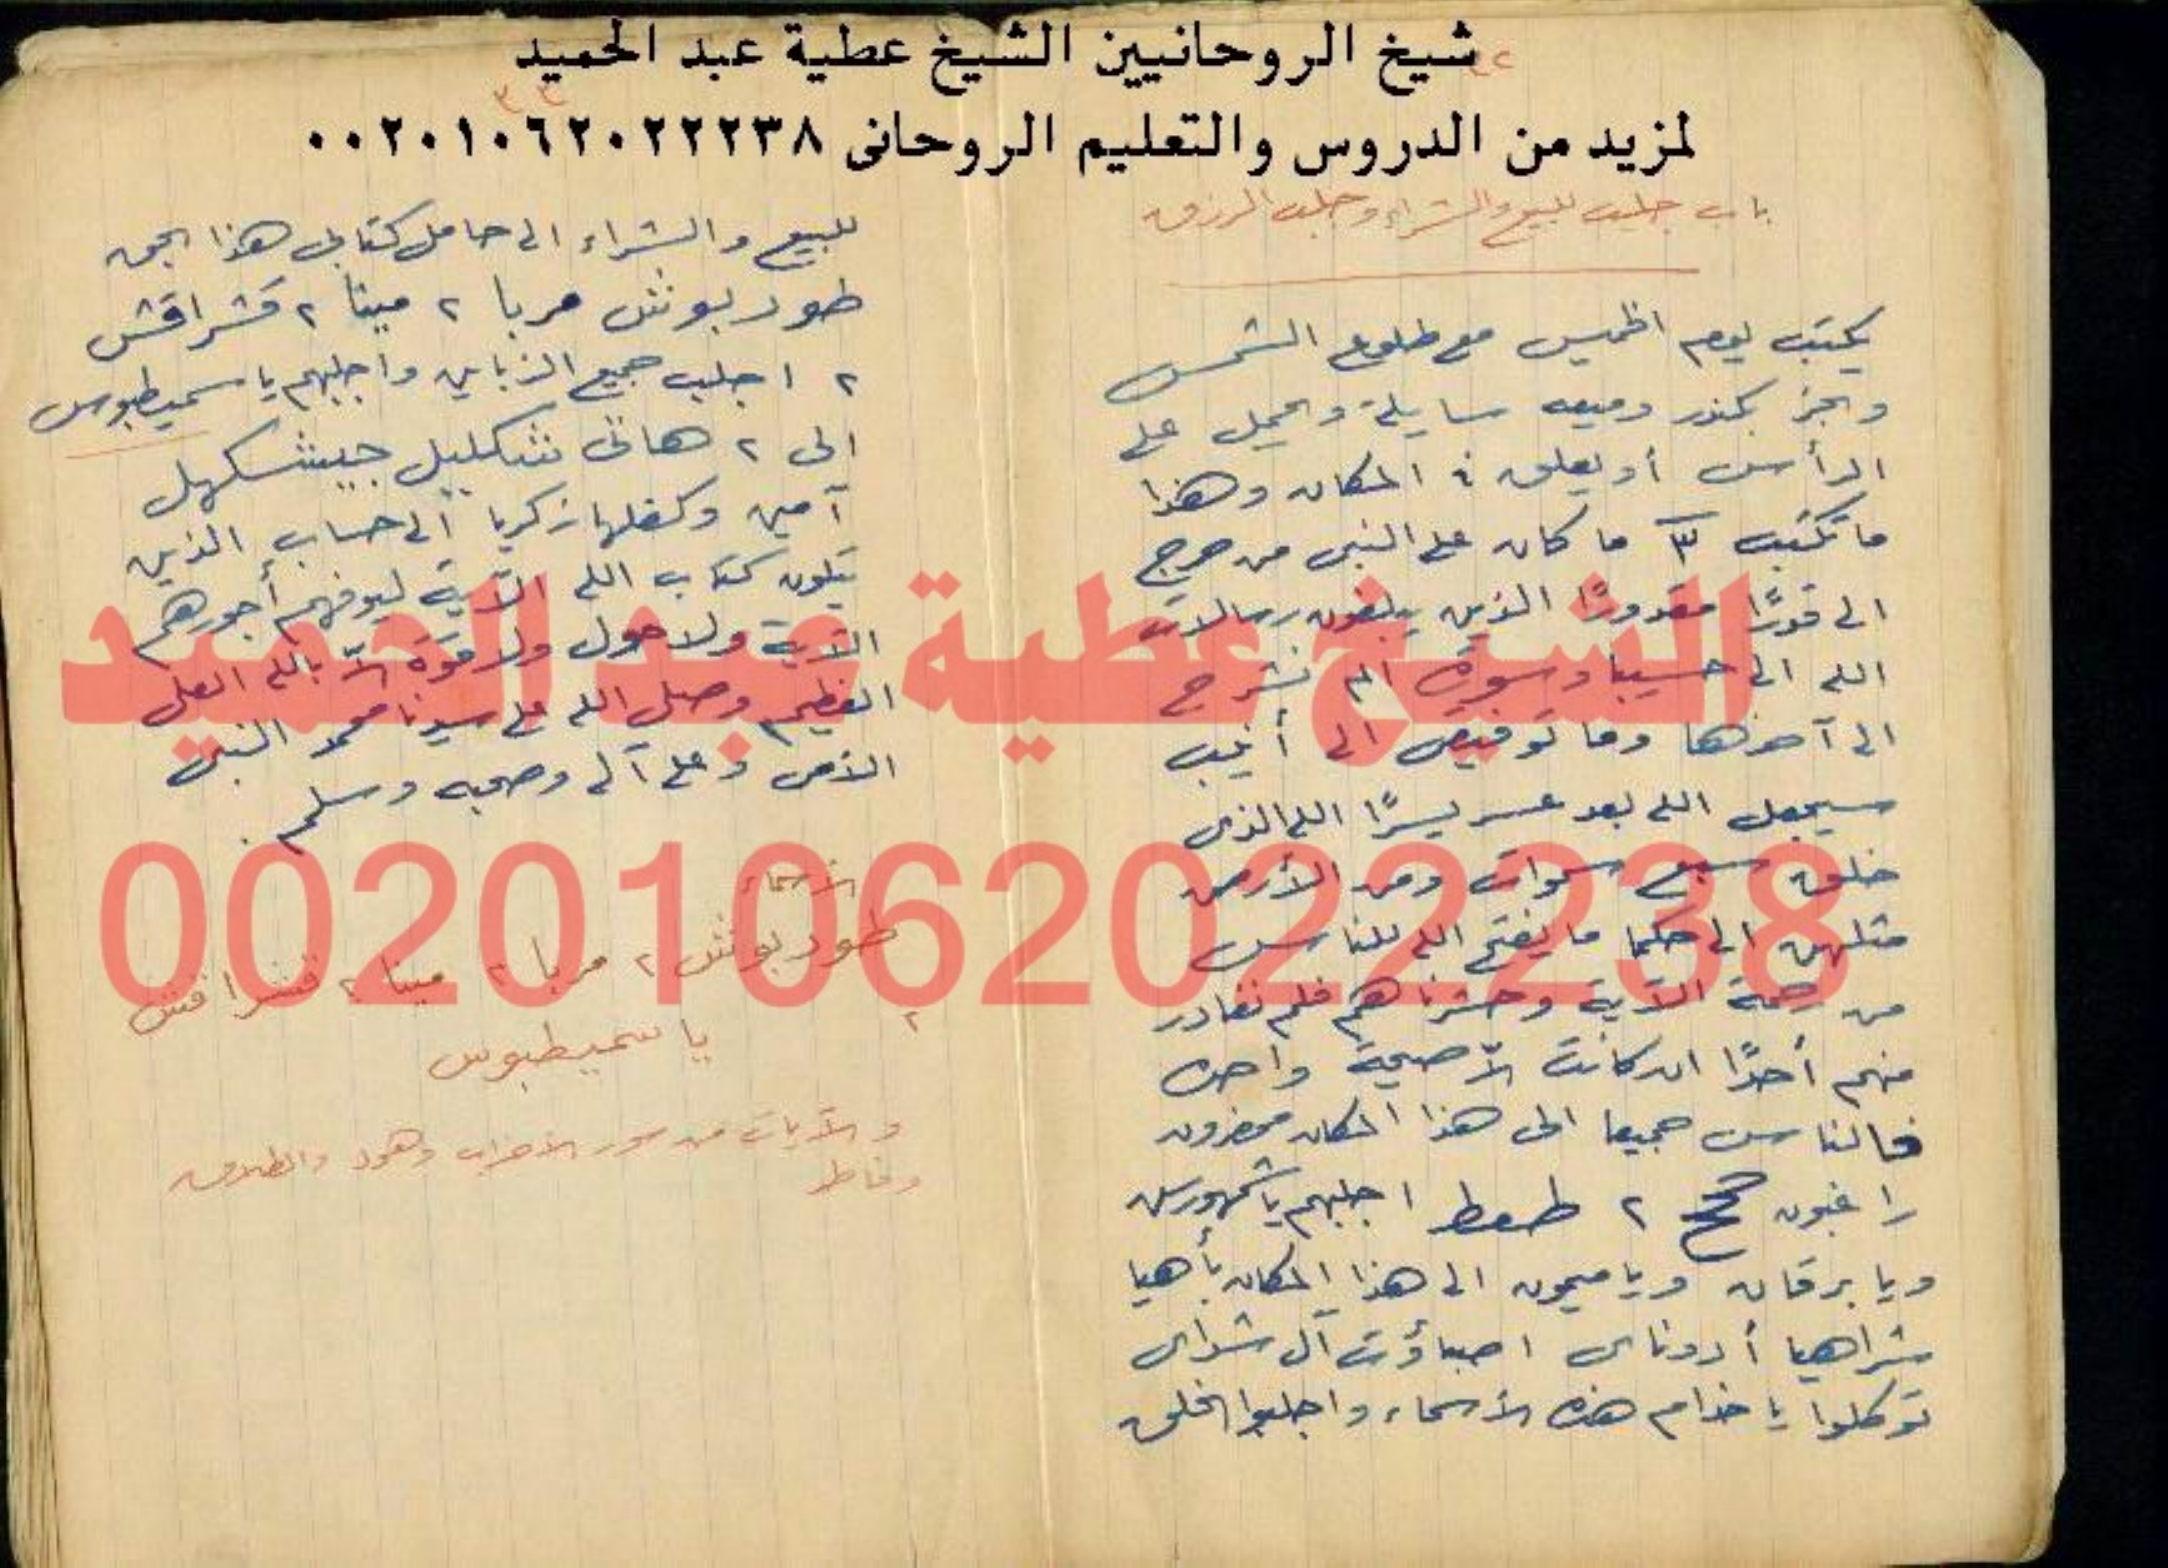 شيخ الروحانيين الشيخ عطية عبد الحميد
لمزيد من الدروس والتعليم الروحانى ٠٠٢٠١٠٦٢٠٢٢٢٣٨
٣٢
باب جليب للبيع والشراء وجلب الرزق
يكتب يوم الخميس مع طلوع الشمس
والبخر بخور وميعه سايلة ويحمل على
الرأس أو يعلق فى المكان وهذا
ما تكتب ما كان على النبى من حرج
الى قدرًا مقدورًا الذين يبلغون رسالات
الله الى حسيبا وسورة الم نشرح
الى آخرها وما توفيقى الى أنيب
سيجعل الله بعد عسر يسرًا الله الذى
خلق سبع سموات ومن الأرض
مثلهن الى حكما ما يفتح الله للناس
من رحمة الآية وحشرناهم فلم نغادر
منهم أحدًا ان كانت إلّا صيحة واحدة
فالناس جميعا الى هذا المكان محضرون
راغبون ٢ طعط اجلبهم يا شمهورس
ويا برقان ويا ميمون الى هذا المكان بأهيا
شراهيا أدوناى اصباؤت آل شداى
توكلوا يا خدام هذه الأسماء واجلبوا الخلق
٣٣
للبيع والشراء الى حامل كتابى هذا بحق
طور بوش مربا ٢ مينا ٢ قشراقش
٢ اجلب جميع الزباين واجلبهم يا سميطبوس
الى ٢ هاتى شكليل جيشكهل
آمين وكفلها زكريا الى حساب الذين
يتلون كتاب الله الآية ليوفهم أجورهم
الآية ولا حول ولا قوة إلّا بالله العلى
العظيم وصلى الله على سيدنا محمد النبى
الأمى وعلى آله وصحبه وسلم.
الأسماء
طور بوش ٢ مربا ٢ مينا ٢ قشراقش
٢
يا سميطبوس
والآيات من سور الأحزاب وهود والطلاق
وفاطر
الشيخ عطية عبد الحميد
00201062022238